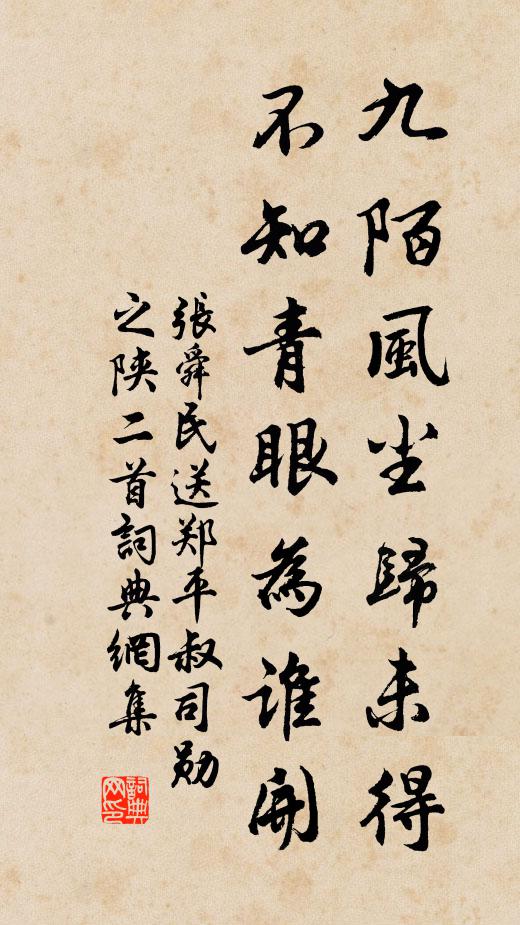 九陌風尘歸未得
不知青眼為誰開
張舜民送郑平叔司勋
之陕二首詞典網集
詞典
网印